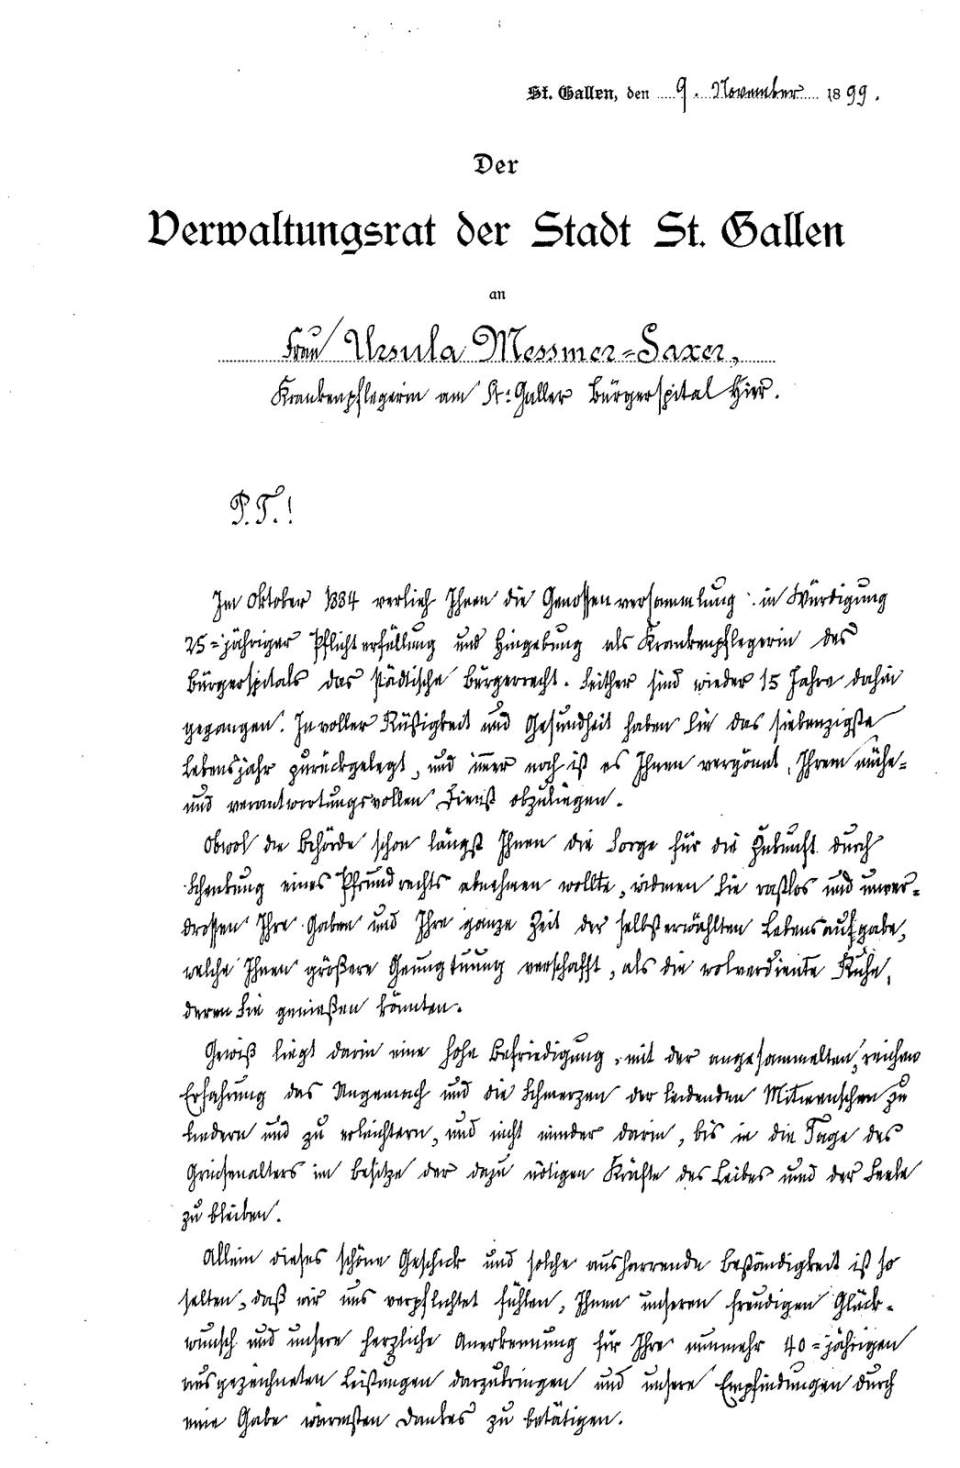 St. Gallen, den 9. November 1899.
Der
Verwaltungsrat der Stadt St. Gallen
an
Frau Ursula Messmer-Saxer,
Krankenpflegerin am St. Galler Bürgerspital Hier.
P. T.!
Im Oktober 1884 verlieh Ihnen die Genossenversammlung in Würdigung
25-jähriger Pflichterfüllung und Hingebung als Krankenpflegerin des
Bürgerspitals das städtische Bürgerrecht. Seither sind wieder 15 Jahre dahin
gegangen. In voller Rüstigkeit und Gesundheit haben Sie das siebenzigste
Lebensjahr zurückgelegt, und immer noch ist es Ihnen vergönnt, Ihrem mühe-
und verantwortungsvollen Dienst obzuliegen.
Obwol die Behörde schon längst Ihnen die Sorge für die Zukunft durch
Schenkung eines Pfrundrechts abnehmen wollte, widmen Sie rastlos und unver-
drossen Ihre Gaben und Ihre ganze Zeit der selbsterwählten Lebensaufgabe,
welche Ihnen größere Genugtuung verschafft, als die wolverdiente Ruhe,
deren Sie genießen könnten.
Gewiß liegt darin eine hohe Befriedigung, mit der angesammelten, reichen
Erfahrung das Ungemach und die Schmerzen der leidenden Mitmenschen zu
lindern und zu erleichtern, und nicht minder darin, bis in die Tage des
Greisenalters im Besitze der dazu nötigen Kräfte des Leibes und der Seele
zu bleiben.
Allein dieses schöne Geschick und solche ausharrende Beständigkeit ist so
selten, daß wir uns verpflichtet fühlen, Ihnen unseren freudigen Glück-
wunsch und unsere herzliche Anerkennung für Ihre nunmehr 40-jährigen
ausgezeichneten Leistungen darzubringen und unsere Empfindungen durch
eine Gabe wärmsten Dankes zu betätigen.